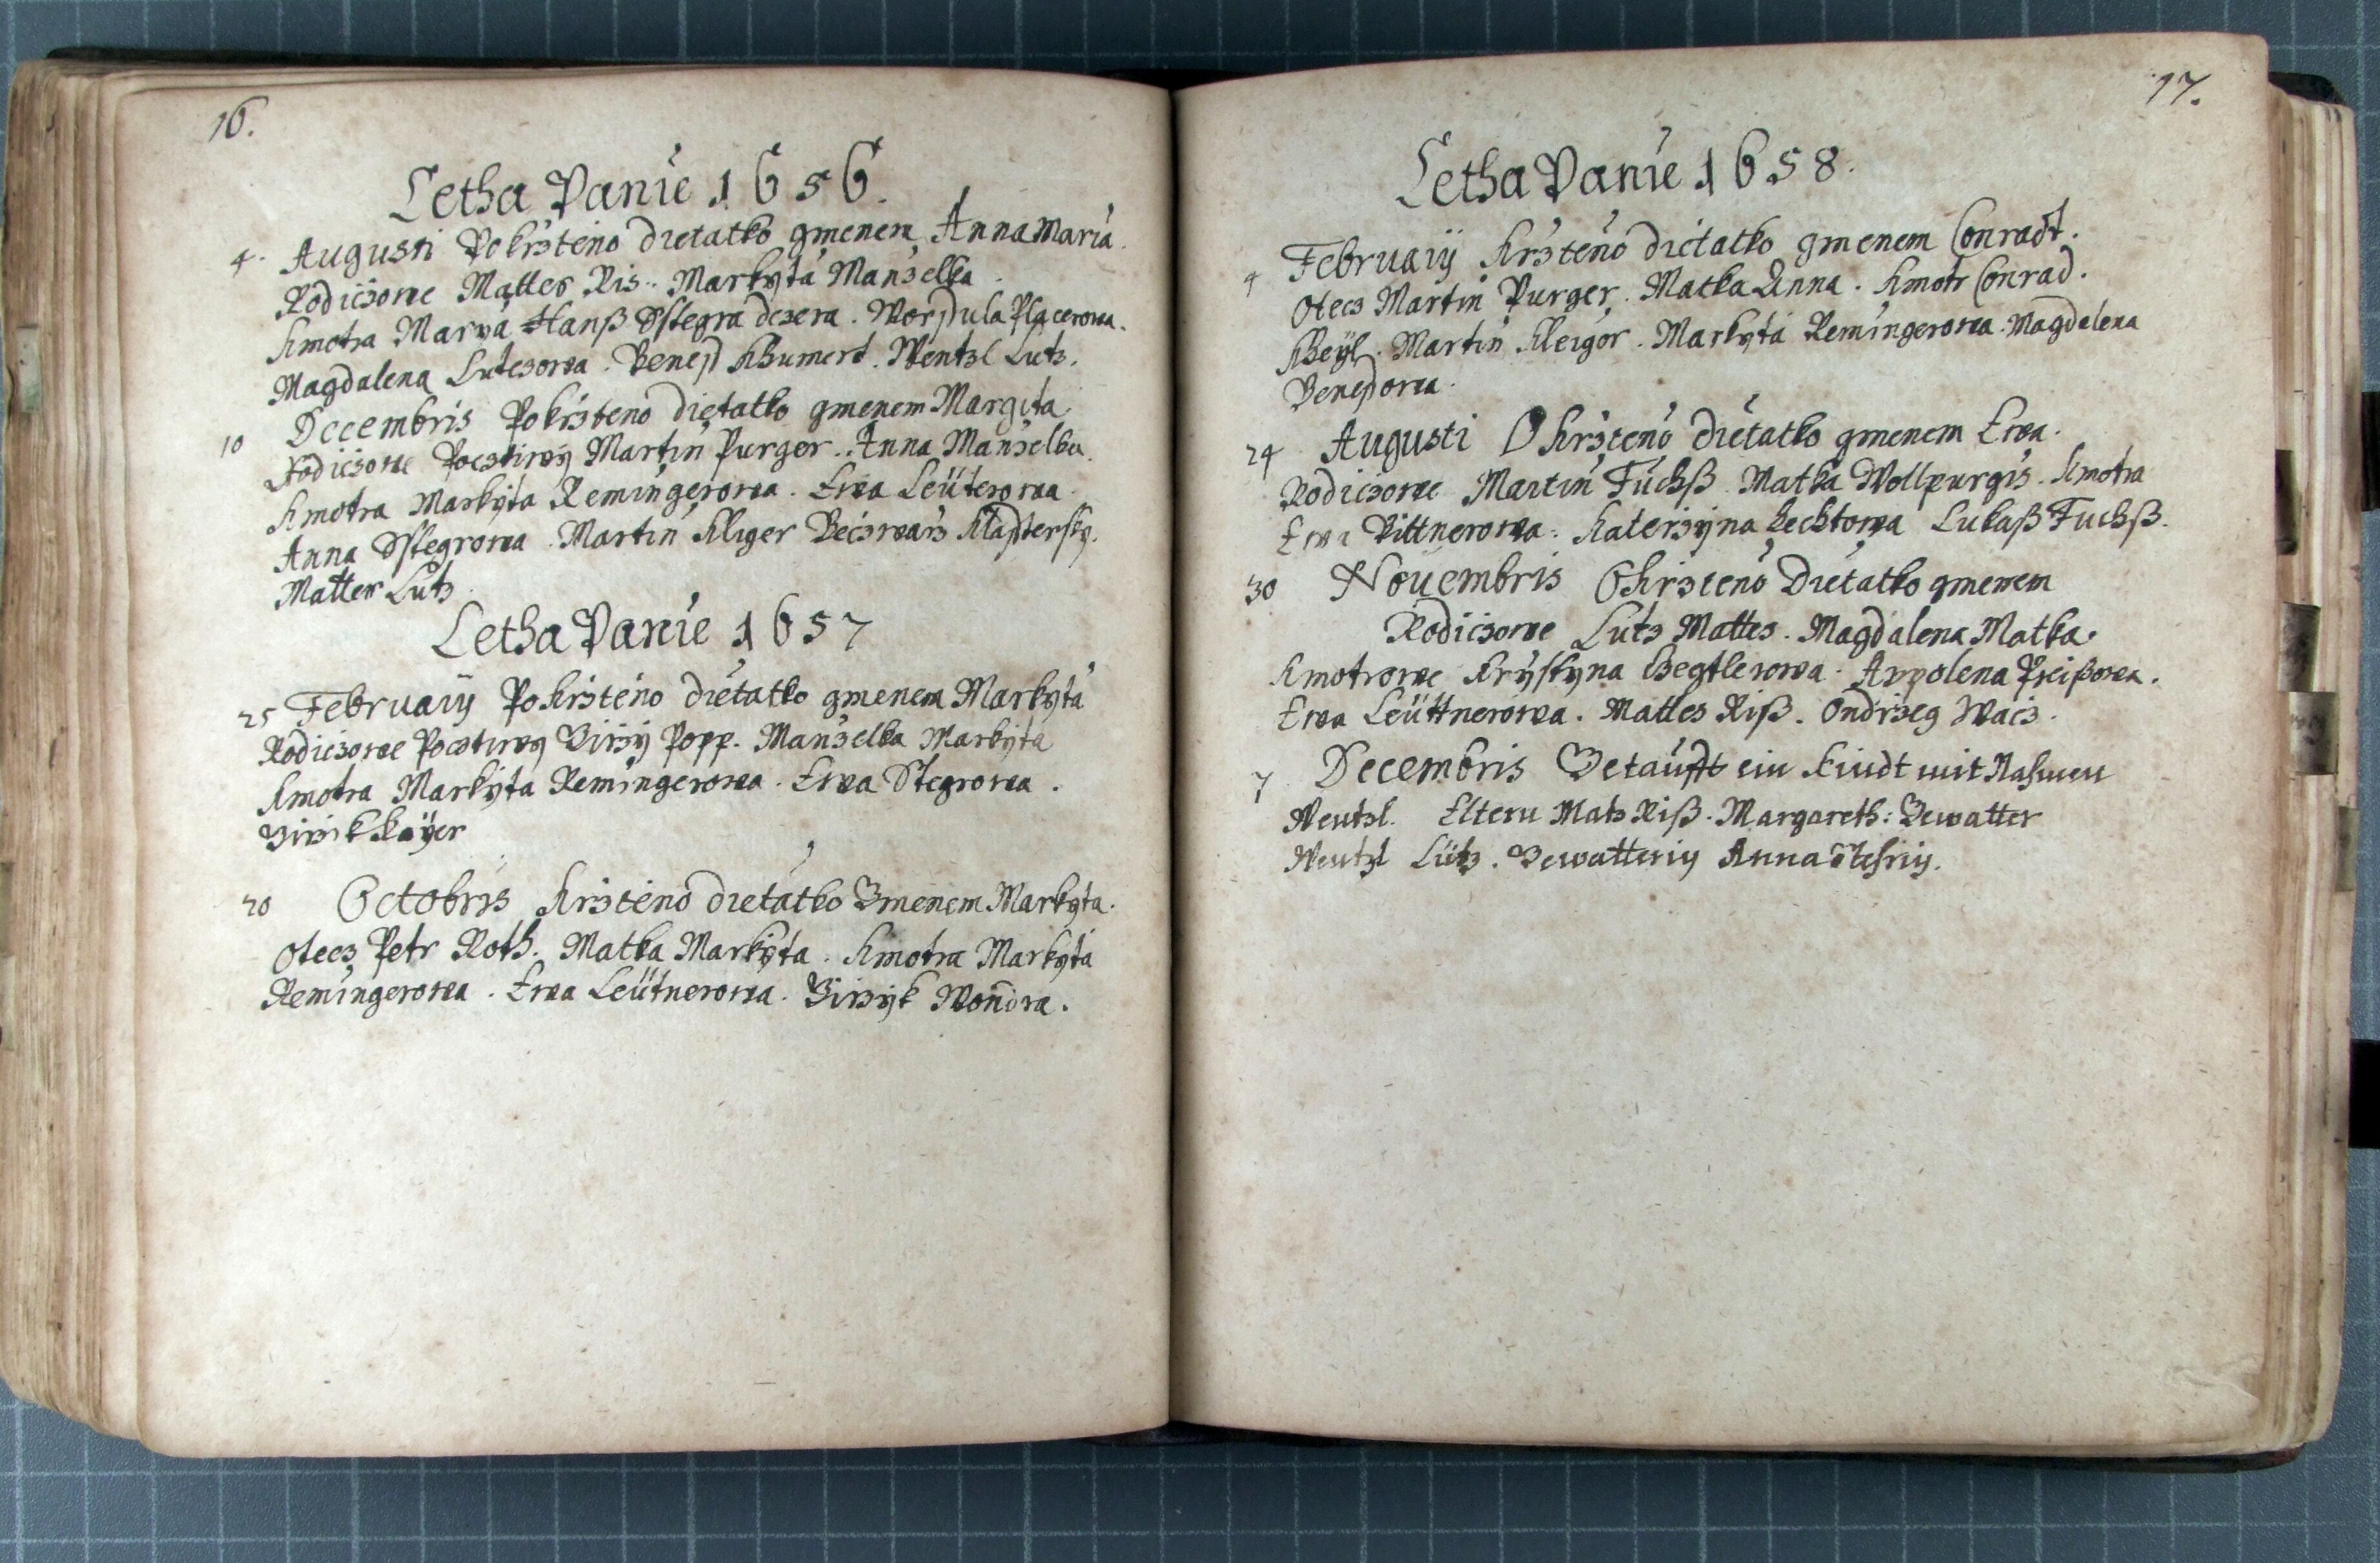 16.
Letha Panie 1656.
4. Augusti Pokrzteno dietatko gmenem Anna Maria.
Rodiczowe Mattes Ris. Markyta Manzelka.
Kmotra Marya Hanß Sstegra dczera. Worssula Placerowa.
Magdalena Lutczowa. Beness Khumert. Wentzl Lutz.
10 Decembris Pokrzteno dietatko gmenem Margita
Rodiczowe Pocztiwý Martin Purger. Anna Manzelka.
Kmotra Markyta Remingerowa. Ewa Leüterowa
Anna Sstegrowa. Martin Kliger Beczwarz Klassterský.
Matter Lutz.
Letha Panie 1657
25 Februarÿ Pokrzteno dietatko gmenem Markyta
Rodiczowe Pocztiwy Girzý Popp. Manzelka Markyta
Kmotra Markyta Remingerowa. Ewa Stegrowa.
Girzik Kayer
20 Octobris Krzteno dietatko Gmenem Markyta.
Otecz Petr Roth. Matka Markyta. Kmotra Markyta
Remingerowa. Ewa Leütnerowa. Girzyk Wondra.
17.
Letha Panie 1658.
4 Februarÿ Krzteno dietatko gmenem Conradt.
Otecz Martin Purger. Matka Anna. Kmotr Conrad.
Kheÿl. Martin Kleigor. Markyta Remingerowa. Magdalena
Benessowa.
24 Augusti Okrzteno dietatko gmenem Ewa.
Rodiczowe Martin Fuchß. Matka Wollpurgis. Kmotra
Ewa Bittnerowa. Katerzyna Lechtowa Lukaß Fuchß.
30 Nouembris Okrzteno Dietatko gmenem
Rodiczowe Lutz Mattes. Magdalena Matka.
Kmotrowe Krystyna Begtlerowa. Appolena Preißowa.
Ewa Leüttnerowa. Mattes Riß. Ondrzeg Wacz.
7 Decembris Getaufft ein Kindt mit Nahmen
Wentzl. Eltern Matz Riß. Margareth: Gewatter
Wentzl Lütz. Gewatterin Anna Stehrin.